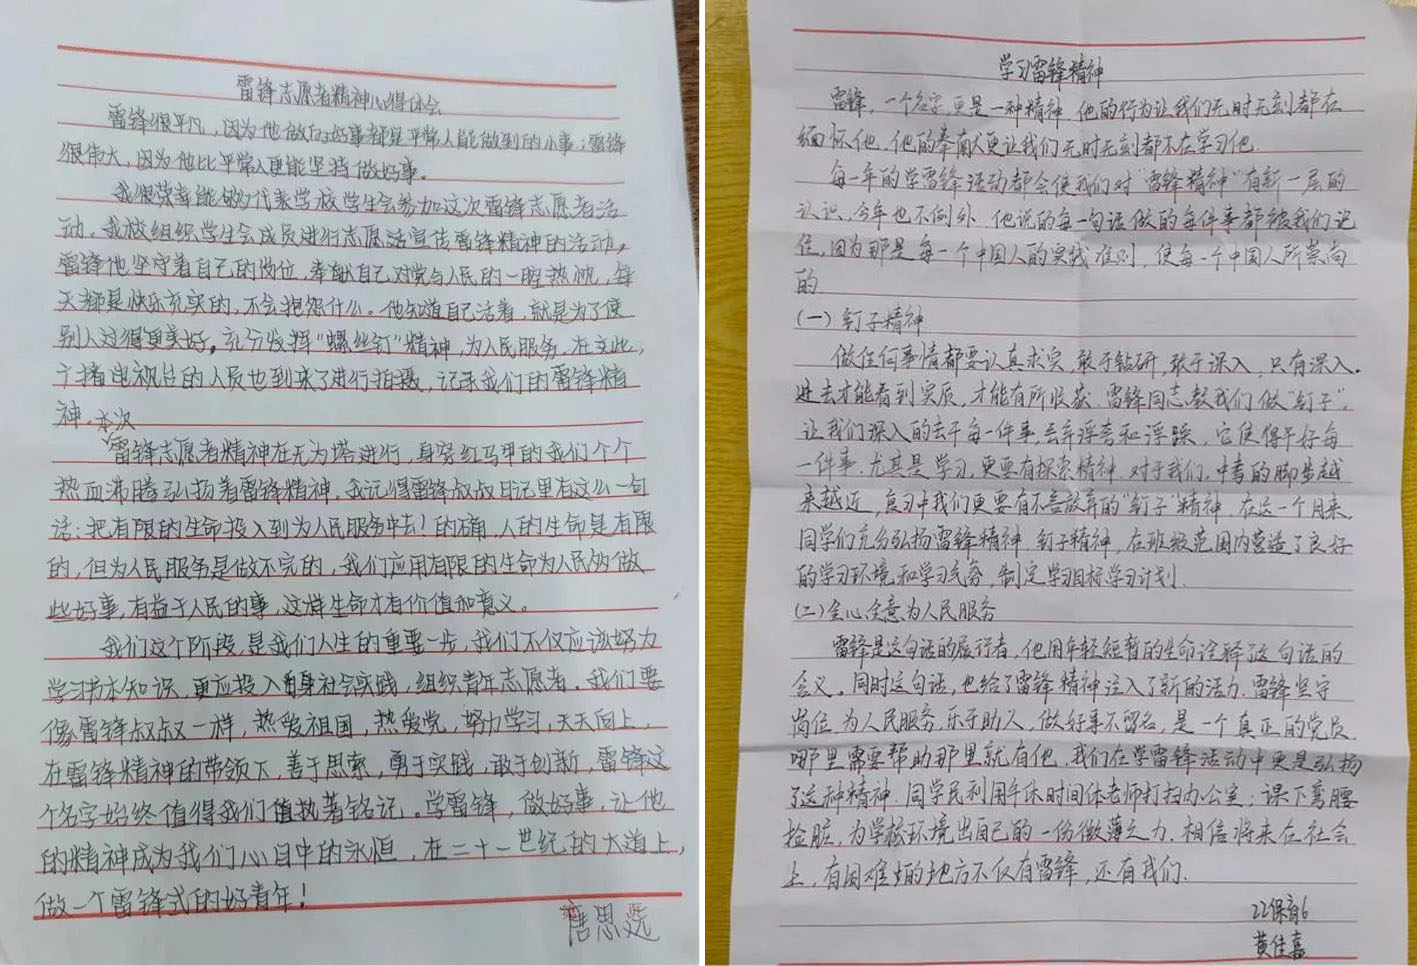 雷锋志愿者精神心得体会
雷锋很平凡，因为他做的好事都是平常人能做到的小事；雷锋
很伟大，因为他比平常人更能坚持做好事。
我很荣幸能够代表学校学生会参加这次雷锋志愿者活
动，我校组织学生会成员进行志愿活宣传雷锋精神的活动，
雷锋他坚守着自己的岗位，奉献自己对党与人民的一腔热忱，每
天都是快乐充实的，不会抱怨什么。他知道自己活着，就是为了使
别人过得更美好，充分发挥“螺丝钉”精神，为人民服务。在交此，
电视台的人员也到来了进行拍摄，记录我们的雷锋精
神。本次
雷锋志愿者精神在无为塔进行，身穿红马甲的我们个个
热血沸腾弘扬着雷锋精神，我记得雷锋叔叔日记里有这么一句
话：把有限的生命投入到为人民服务中去！的确，人的生命是有限
的，但为人民服务是做不完的，我们应用有限的生命为人民多做
些好事，有益于人民的事，这样生命才有价值和意义。
我们这个阶段，是我们人生的重要一步，我们不仅应该努力
学习书本知识，更应投入身社会实践，组织青年志愿者。我们要
像雷锋叔叔一样，热爱祖国，热爱党，努力学习，天天向上，
在雷锋精神的带领下，善于思索，勇于实践，敢于创新，雷锋这
个名字始终值得我们值执著铭记。学雷锋，做好事，让他
的精神成为我们心目中的永恒，在二十一世纪的大道上，
做一个雷锋式的好青年！
唐思选
学习雷锋精神
雷锋，一个名字，更是一种精神，他的行为让我们无时无刻都在
缅怀他，他的奉献更让我们无时无刻都不在学习他.
每一年的学雷锋活动都会使我们对“雷锋精神”有新一层的
认识，今年也不例外，他说的每一句话做的每件事都被我们记
住，因为那是每一个中国人的实践准则，使每一个中国人所崇尚
的
(一)钉子精神
做任何事情都要认真求实，敢于钻研，敢于深入，只有深入.
进去才能看到实质，才能有所收获，雷锋同志教我们做“钉子”，
让我们深入的去干每一件事，丢弃浮夸和浮躁，它使得干好每
一件事.尤其是学习，更要有探索精神.对于我们，中考的脚步越
来越近，复习中我们更要有不言放弃的“钉子”精神，在这一个月来，
同学们充分弘扬雷锋精神，钉子精神，在班级范围内营造了良好
的学习环境和学习气氛，制定学习目标学习计划.
(二)全心全意为人民服务
雷锋是这句话的履行者，他用年轻短暂的生命诠释这句话的
含义。同时这句话，也给了雷锋精神注入了新的活力.雷锋坚守
岗位，为人民服务，乐于助人，做好事不留名，是一个真正的党员，
哪里需要帮助那里就有他，我们在学雷锋活动中更是弘扬
了这种精神.同学民利用午休时间体老师打扫办公室；课下弯腰
捡脏，为学校环境出自己的一份微薄之力.相信将来在社会
上，有困难的地方不仅有雷锋，还有我们.
22保育6
黄佳嘉